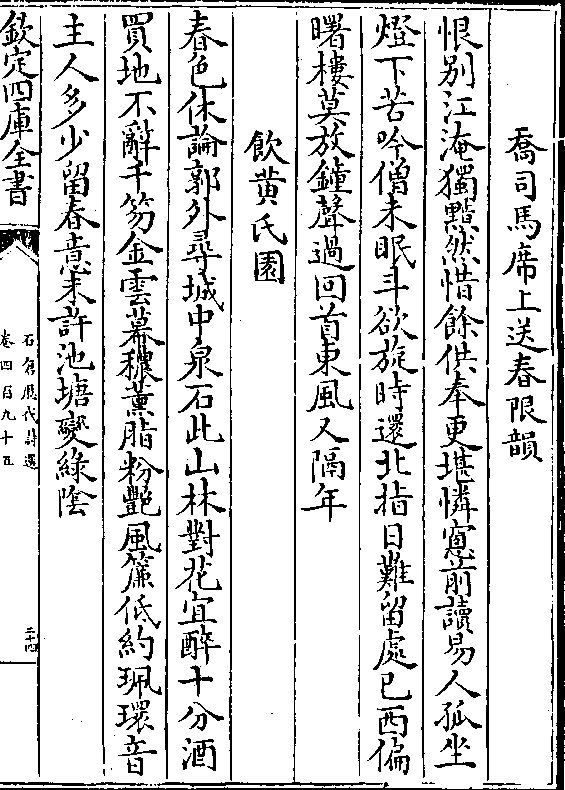 喬司馬席上送春限韻
恨别江淹獨黯然惜餘供奉更堪憐窻前讀易人孤坐
燈下苦吟僧未眠斗欲旋時還北指日難留處已西偏
曙樓莫放鐘聲過回首東風又隔年
飲黄氏園
春色休論郭外尋城中泉石此山林對花宜醉十分酒
買地不辭千笏金雲幕穠薰脂粉艶風簾低約珮環音
主人多少留春意未許池塘變綠陰
欽定四庫全書
石倉歴代詩選
卷四百九十五
三十四